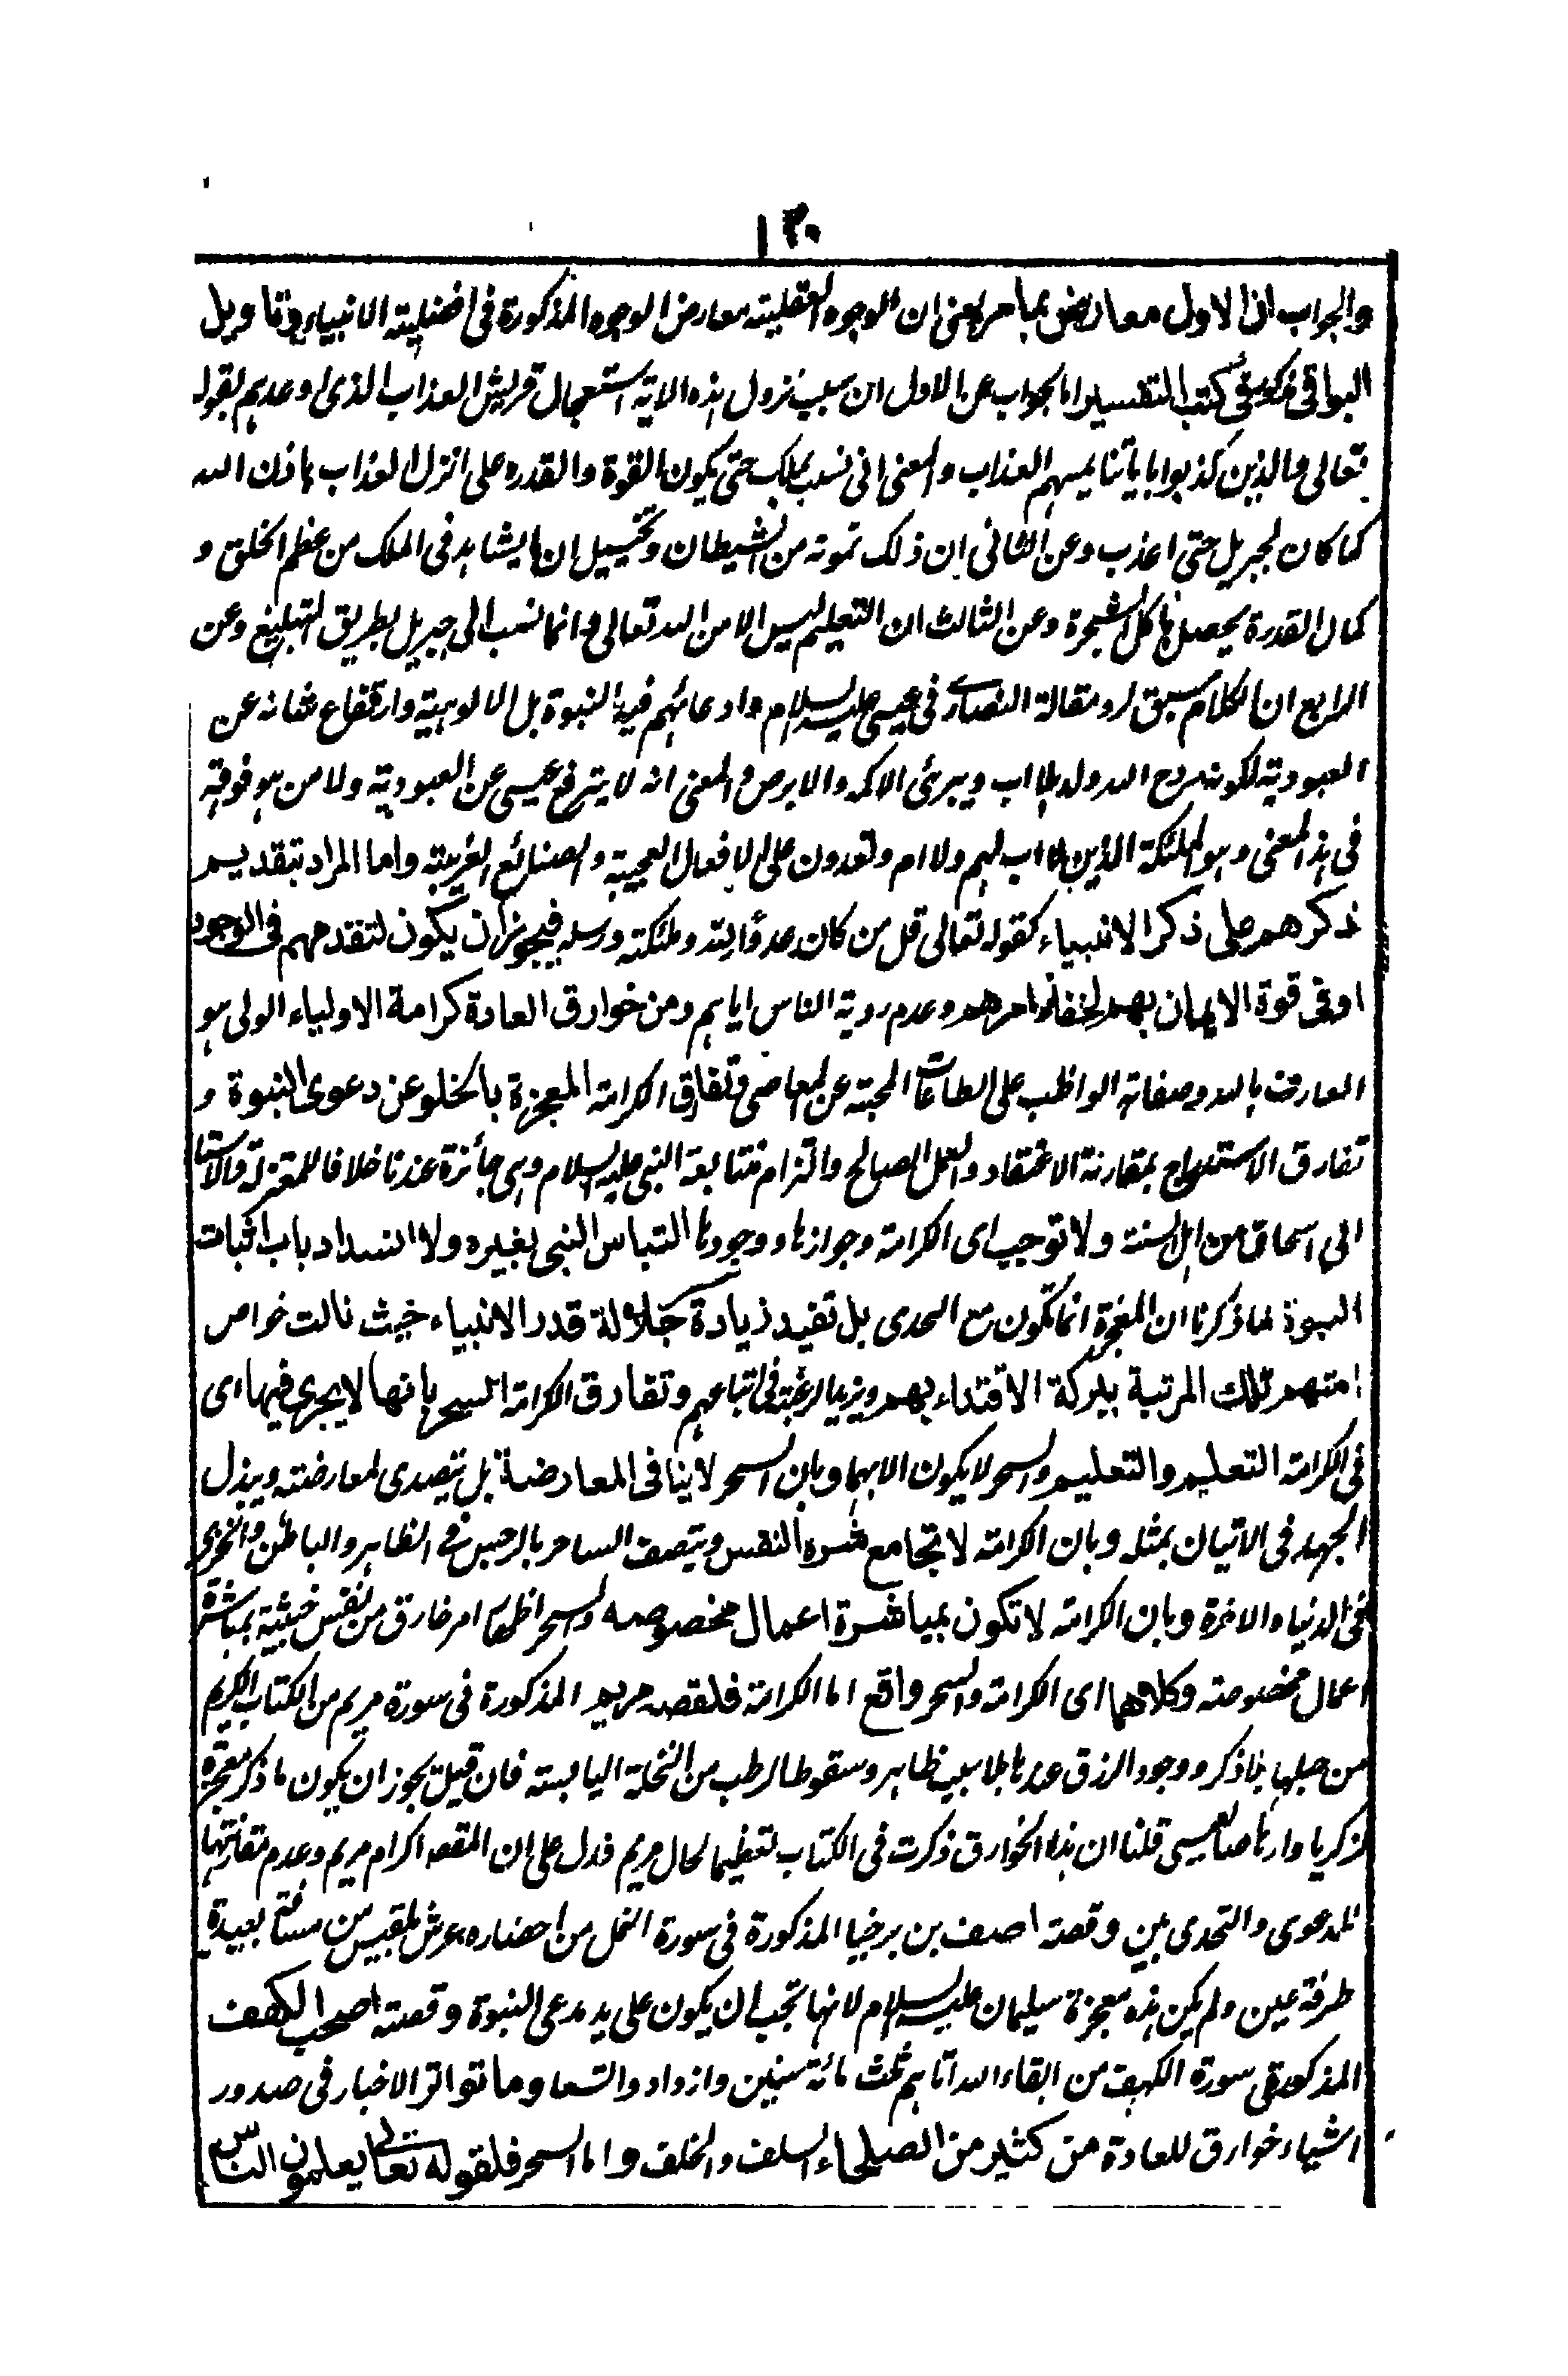 ١٣٠
والجواب ان الاول معارض بما مر يعنى ان الوجوه العقلية معارض الوجوه المذكورة فى افضلية الانبياء وتاويل
البواقى مذكور فى كتب التفسير اما الجواب عن الاول ان سبب نزول هذه الاية استعجال قريش العذاب الذى وعدهم بقوله
تعالى والذين كذبوا باياتنا يمسهم العذاب والمعنى انى لست بملك حتى يكون القوة والقدرة على انزال العذاب باذن الله
كما كان لجبريل حتى اعذب وعن الثانى ان ذلك تمويه من الشيطان وتخييل ان ما يشاهد فى الملك من عظم الخلق و
كمال القدرة يحصل باكل الشجرة وعن الثالث ان التعليم ليس الا من الله تعالى وانما نسب الى جبريل بطريق التبليغ وعن
الرابع ان الكلام سبق لرد مقالة النصارى فى عيسى عليه السلام وادعائهم فيه النبوة بل الالوهية وارتفاع شانه عن
العبودية لكونه روح الله ولد بلا اب ويبرئ الاكمه والابرص والمعنى انه لا يترفع عيسى عن العبودية ولا من هو فوقه
فى هذا المعنى وهو الملئكة الذين لا اب لهم ولا ام ويقدرون على الافعال العجيبة والصنائع الغريبة واما المراد بتقديم
ذكرهم على ذكر الانبياء كقوله تعالى قل من كان عدوا لله وملئكته ورسله فيجوز ان يكون لتقدمهم فى الوجود
او فى قوة الايمان بهم لخفاء امرهم وعدم روية الناس اياهم ومن خوارق العادة كرامة الاولياء الولى هو
العارف بالله وصفاته المواظب على الطاعات المجتنب عن المعاصى وتفارق الكرامة المعجزة بالخلو عن دعوى النبوة و
تفارق الاستدراج بمقارنة الاعتقاد والعمل الصالح والتزام متابعة النبى عليه السلام وهى جائزة عندنا خلافا للمعتزلة والاستا
ابى اسحاق من اهل السنة ولا توجب اى الكرامة وجوازها ووجودها التباس النبى بغيره ولا انسداد باب اثبات
النبوة لما ذكرنا ان المعجزة انما تكون مع التحدى بل تفيد زيادة جلالة قدر الانبياء حيث نالت خواص
امتهم تلك المرتبة ببركة الاقتداء بهم ويزيد الرغبة فى اتباعهم وتفارق الكرامة السحر بانها لا يجرى فيها اى
فى الكرامة التعليم والتعليم والسحر لا يكون الا بهما وبان السحر لا ينافى المعارضة بل يتصدى لمعارضته ويبذل
الجهد فى الاتيان بمثله وبان الكرامة لا تجامع شره النفس ويتصف الساحر بالرجس فى الظاهر والباطن والخزى
فى الدنيا والاخرة وبان الكرامة لا تكون بمباشرة اعمال مخصوصه والسحر اظهار امر خارق من نفس خبيثة بمباشرة
اعمال مخصوصته وكلاهما اى الكرامة والسحر واقع اما الكرامة فلقصه مريم المذكورة فى سورة مريم من الكتاب الكريم
من حبلها بلا ذكر ووجود الرزق عندها بلا سبب ظاهر وسقوط الرطب من النخلة اليابسة فان قيل يجوز ان يكون ما ذكر معجزة
لزكريا وارهاصا لعيسى قلنا ان هذا الخوارق ذكرت فى الكتاب لتعظيما لحال مريم فدل على ان المقصد اكرام مريم وعدم مقارنتها
للدعوى والتحدى بين وقصة اصف بن برخيا المذكورة فى سورة النمل من احضاره عرش بلقيس من مسافة بعيدة
طرفة عين ولم يكن هذه معجزة سليمان عليه السلام لانها تجب ان يكون على يد مدعى النبوة وقصة اصحب الكهف
المذكورة فى سورة الكهف من ابقاء الله اياهم ثلث مائة سنين وازدادوا تسعا وما تواتر الاخبار فى صدور
اشياء خوارق للعادة من كثير من الصلحاء السلف والخلف واما السحر فلقوله تعالى يعلمون الناس